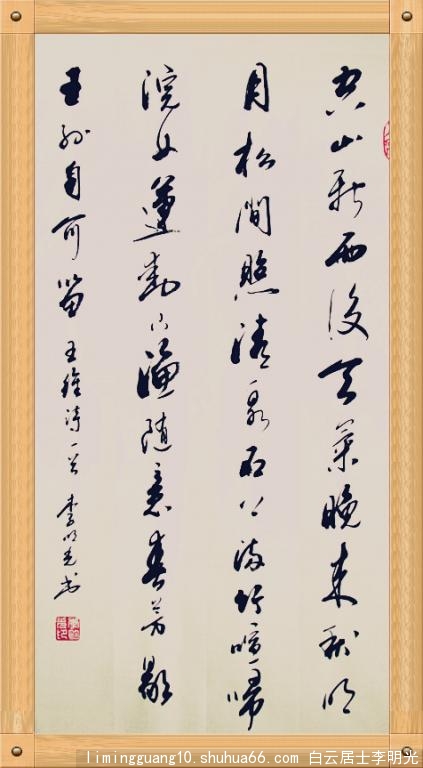 空山新雨後天氣晚来秋明
月松間照清泉石上流竹喧歸
浣女蓮動下漁随意春芳歇
王孫自可留 王維詩一首 李明光书
limingguang10.shuhua66.com 白云居士李明光